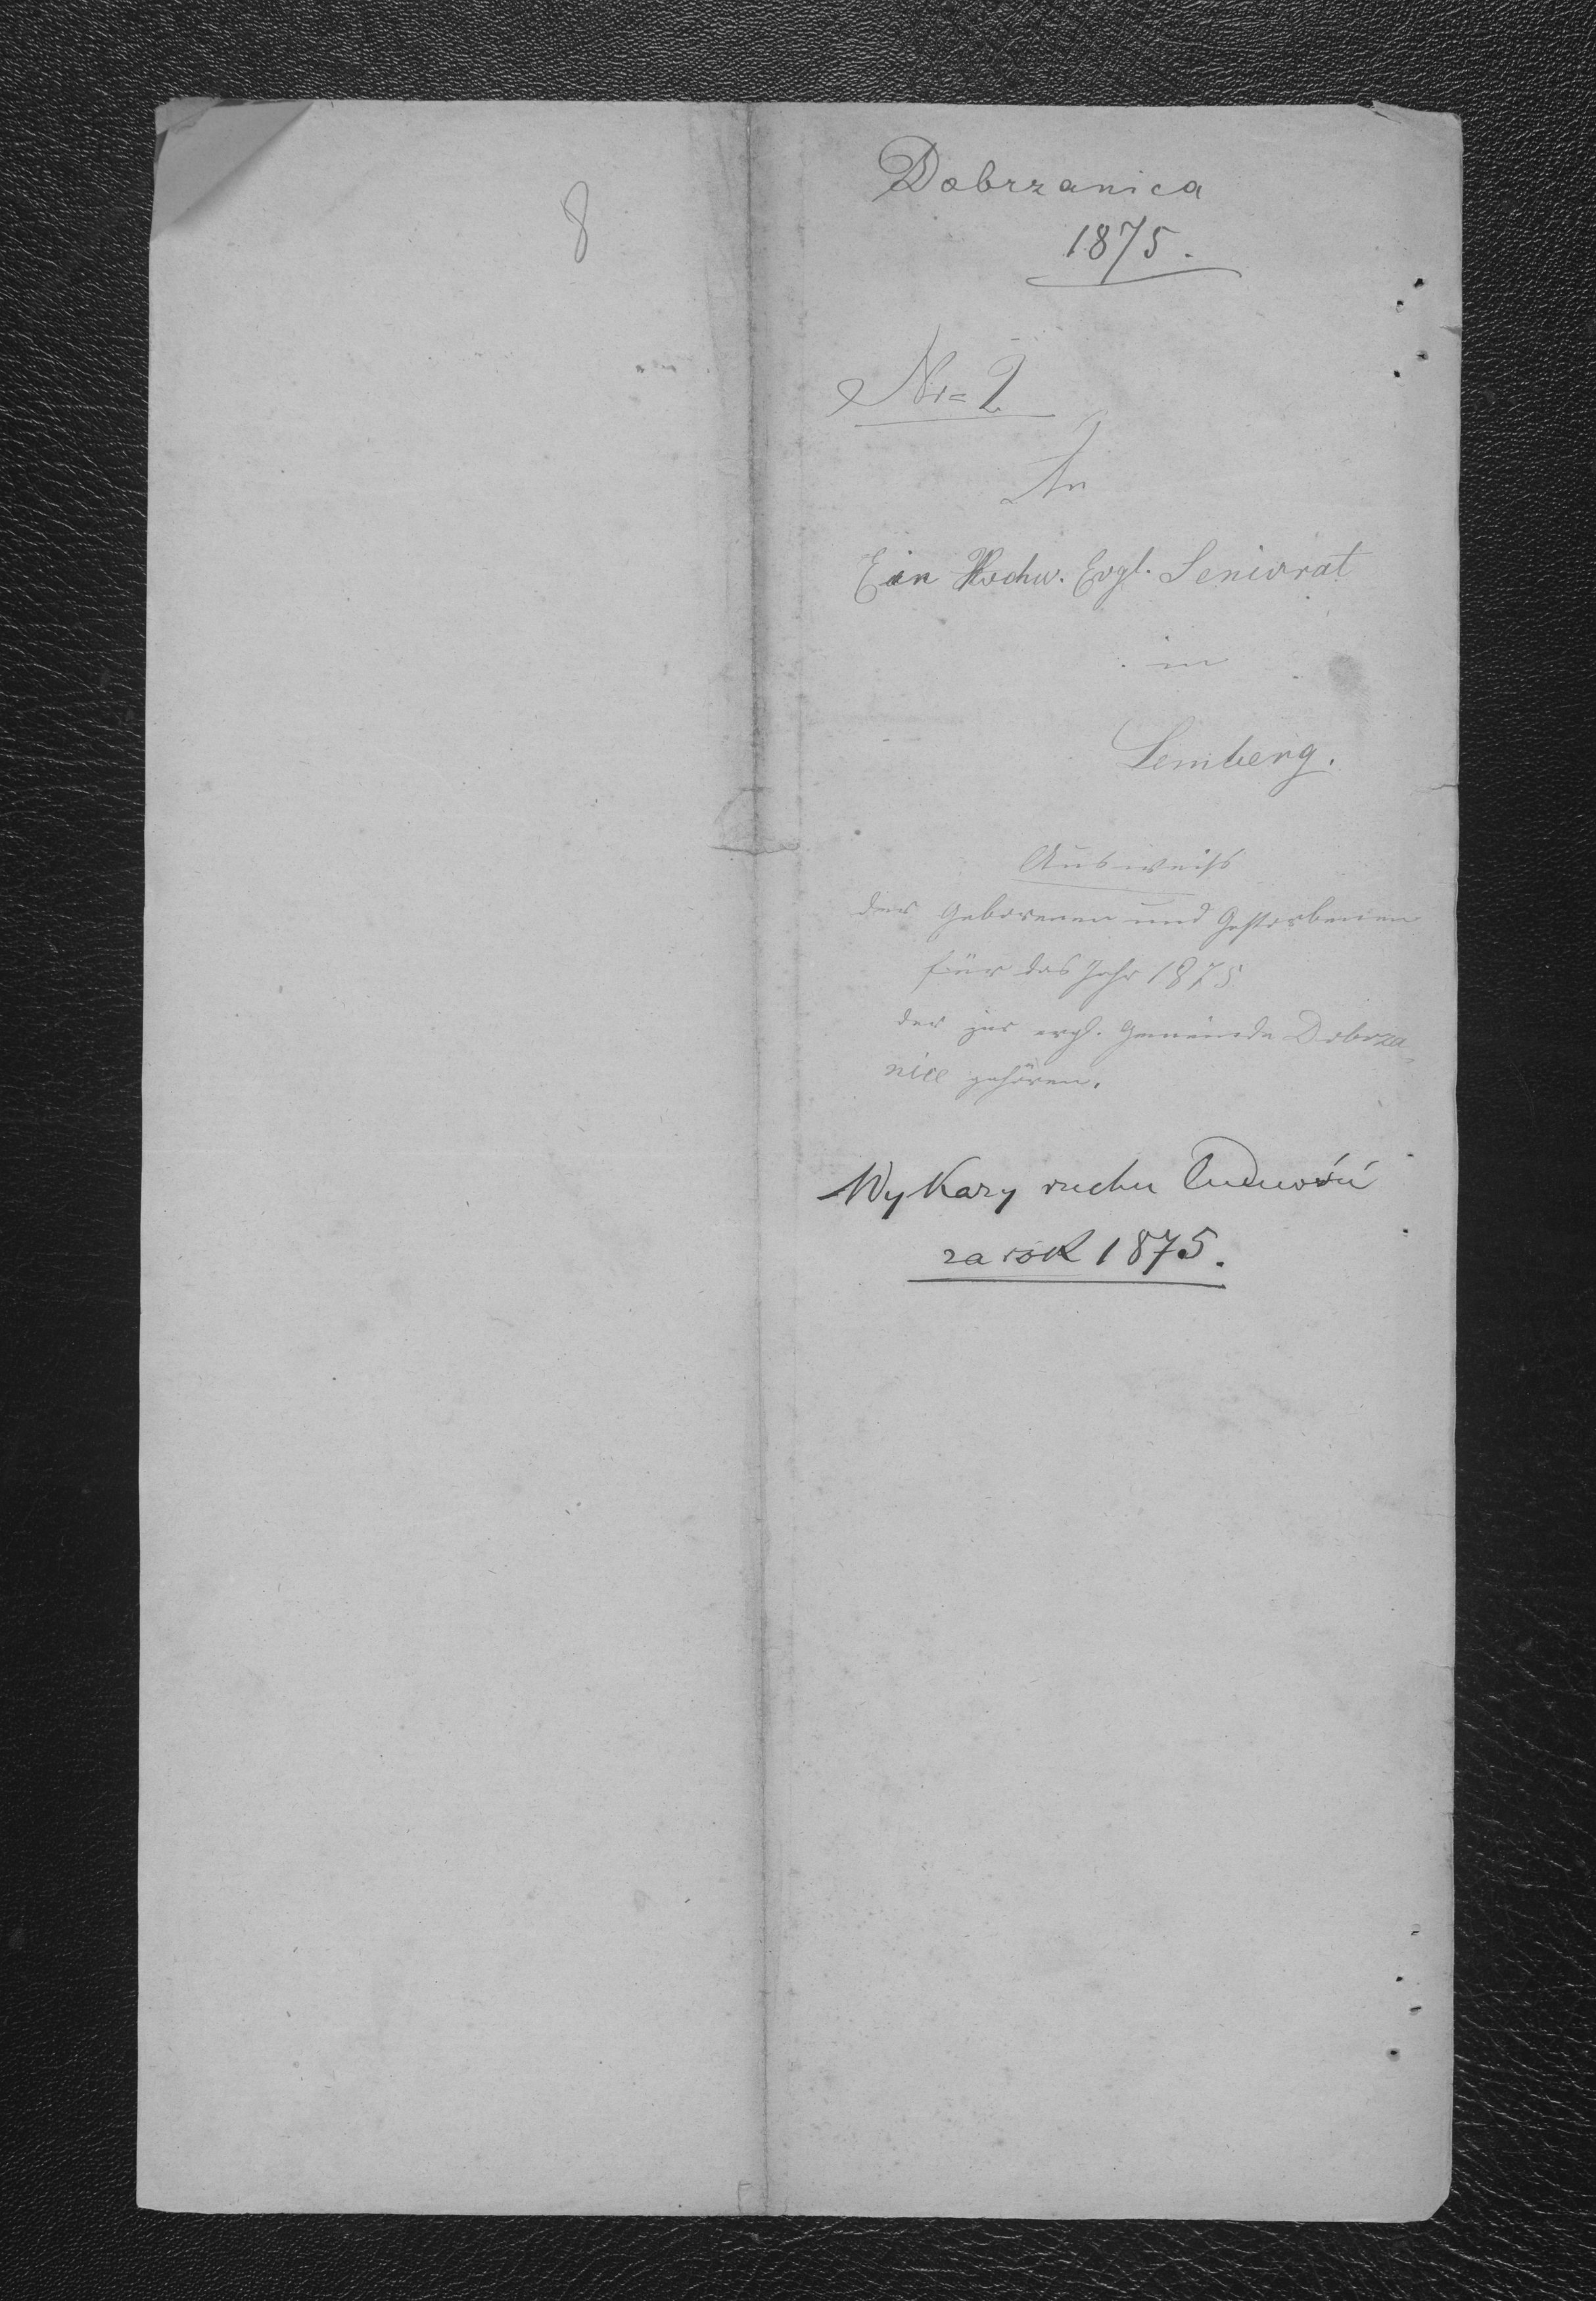 8
Dobrzanica
1875.
Nr= 2
An
Ein Hochw. Evgl. Seniorat
in
Lemberg.
Ausweiß
der Geborenen und Gestorbenen
für das Jahr 1875
der zur evgl. Gemeinde Dobrza-
nice gehören.
Wykazy ruchu ludności
za rok 1875.